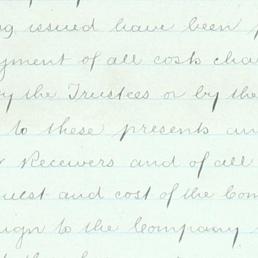 ng issued have been p
yment of all costs cha
by the Trustees or by the
to these presents an
Receivers and of all
uest and cost of the Com
ign to the Company